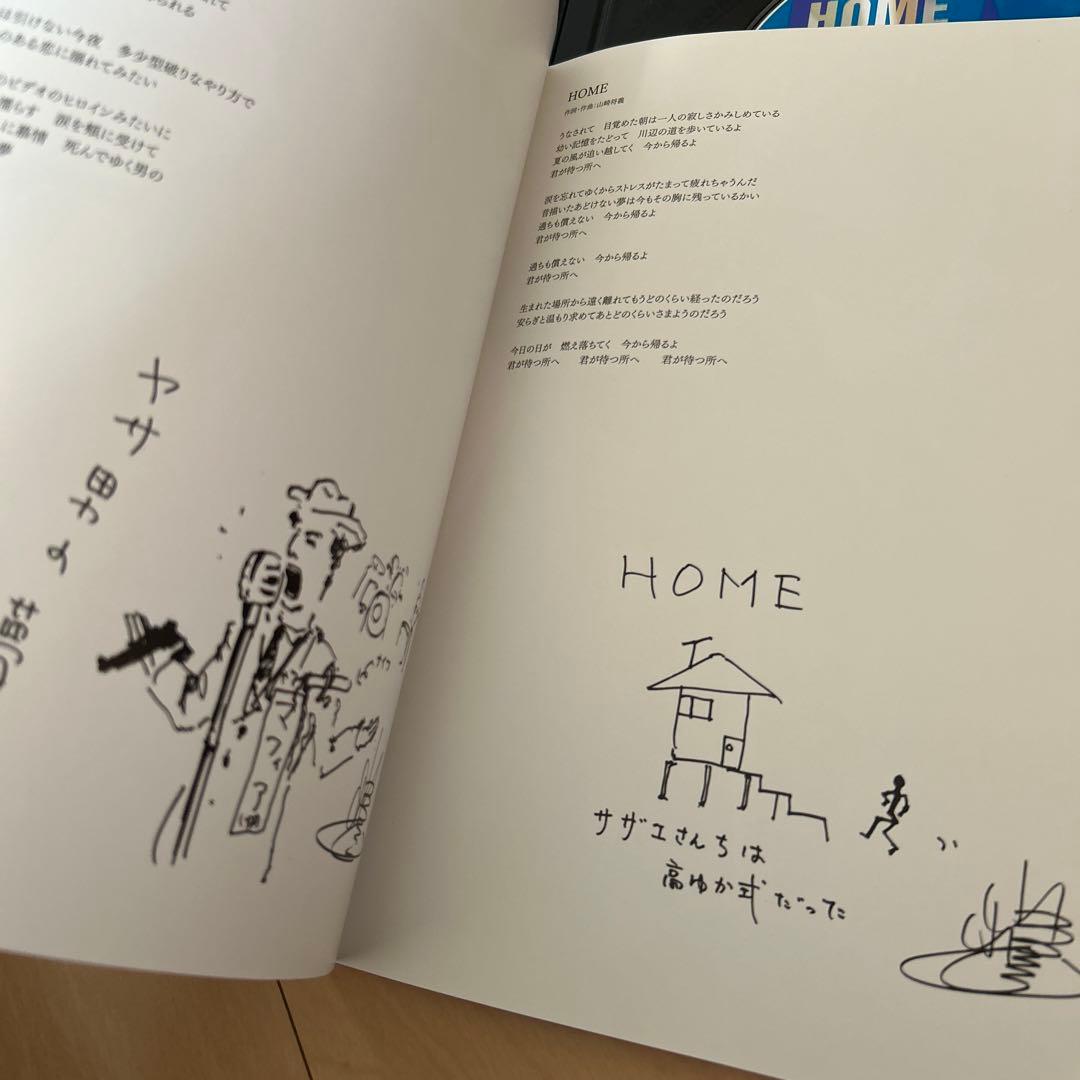 られる
は引けない今夜　多少型破りなやり方で
のある恋に溺れてみたい
のビデオのヒロインみたいに
濡らす　涙を頬に受けて
に慕情　死んでゆく男の
夢
ヤサ男の
HOME
HOME
作詞・作曲：山崎将義
うなされて　目覚めた朝は一人の寂しさかみしめている
幼い記憶をたどって　川辺の道を歩いているよ
夏の風が追い越してく　今から帰るよ
君が待つ所へ
涙を忘れてゆくからストレスがたまって疲れちゃうんだ
昔描いたあどけない夢は今もその胸に残っているかい
過ちも償えない　今から帰るよ
君が待つ所へ
過ちも償えない　今から帰るよ
君が待つ所へ
生まれた場所から遠く離れてもうどのくらい経ったのだろう
安らぎと温もり求めてあとどのくらいさまようのだろう
今日の日が　燃え落ちてく　今から帰るよ
君が待つ所へ　君が待つ所へ　君が待つ所へ
HOME
サザエさんちは
高ゆか式だった